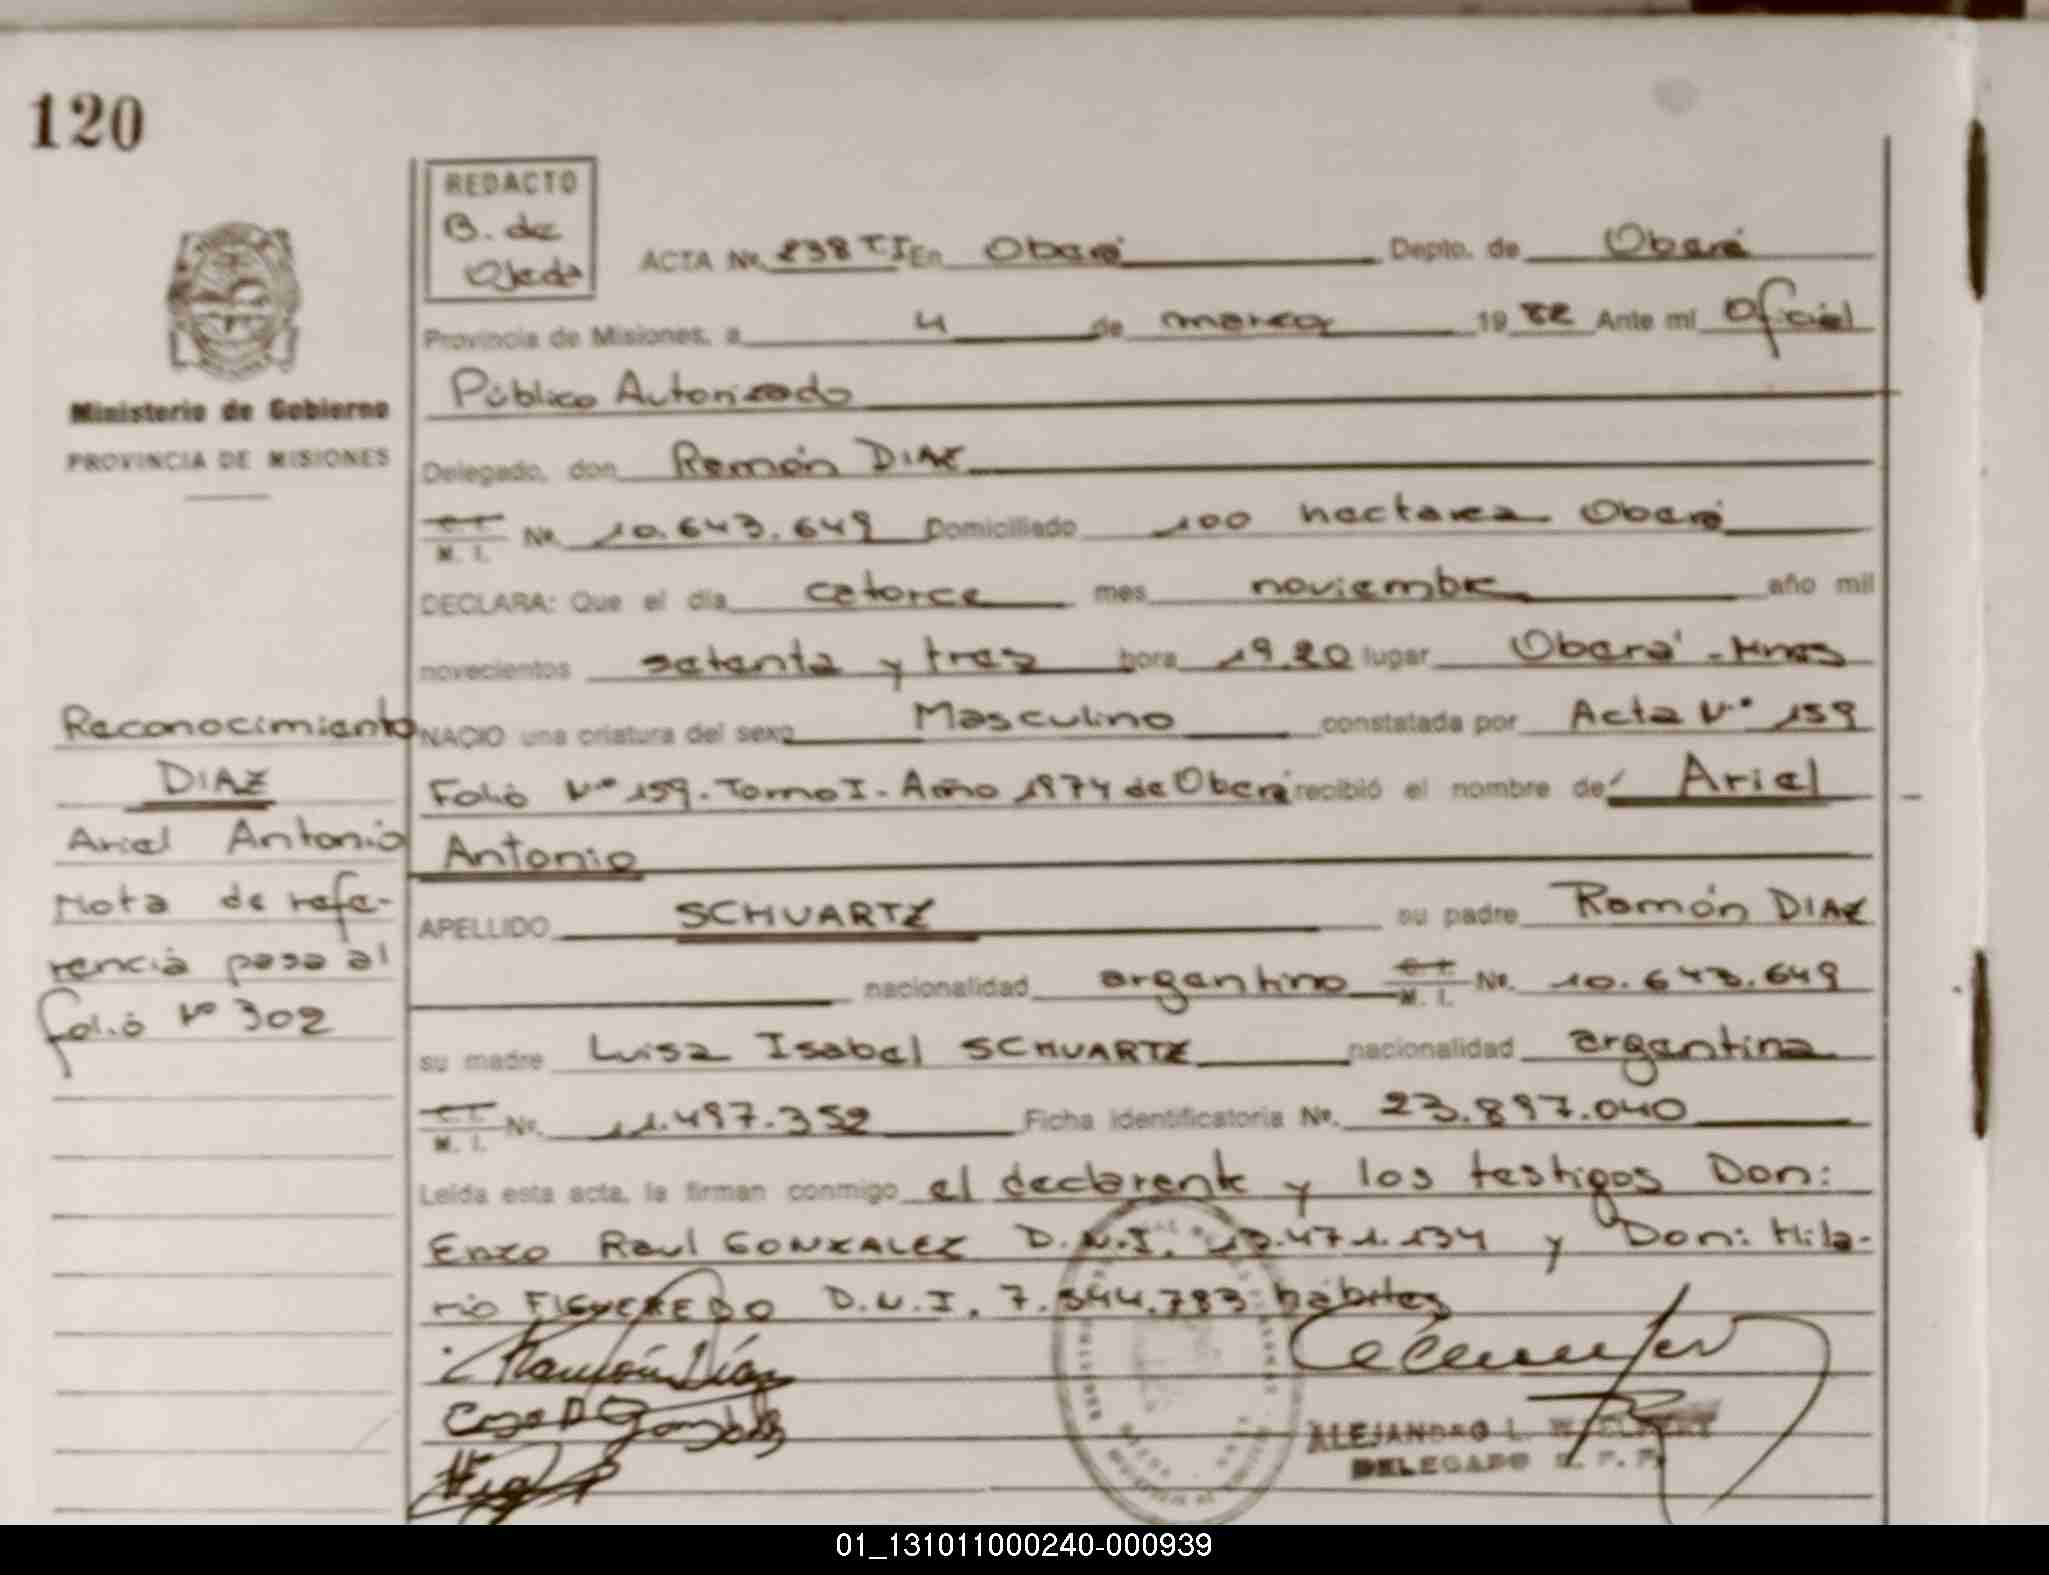 120
REDACTO
B. de
Ojeda
ACTA No. 238 TI En Oberá Depto. de Oberá
Provincia de Misiones, a 4 de marzo 19 82 Ante mí Oficial
Público Autorizado
Ministerio de Gobierno
PROVINCIA DE MISIONES
Delegado, don Ramón DIAZ
C.I.
M. I. No. 10.643.649 Domiciliado 100 hectarea Oberá
DECLARA: Que el día catorce mes noviembre año mil
novecientos setenta y tres hora 19.20 lugar Oberá - Mnes
NACIO una criatura del sexo Masculino constatada por Acta Nº 159
Folio Nº 159. Tomo I - Año 1974 de Oberá recibió el nombre de Ariel
Antonio
APELLIDO SCHUARTZ su padre Ramón DIAZ
nacionalidad argentino C.I. M. I. No. 10.643.649
su madre Luisa Isabel SCHUARTZ nacionalidad argentina
C.I.
M. I. No. 11.497.352 Ficha identificatoria No. 23.897.040
Leída esta acta, la firman conmigo el declarente y los testigos Don:
Enzo Raul GONZALEZ D.N.I. 13.471.134 y Don: Hila-
rio FIGUEREDO D.N.I. 7.544.783 hábiles
Reconocimiento
DIAZ
Ariel Antonio
Nota de refe-
rencia pasa al
folio Nº 302
Ramón Díaz
ALEJANDRO L.
DELEGADO
01_131011000240-000939